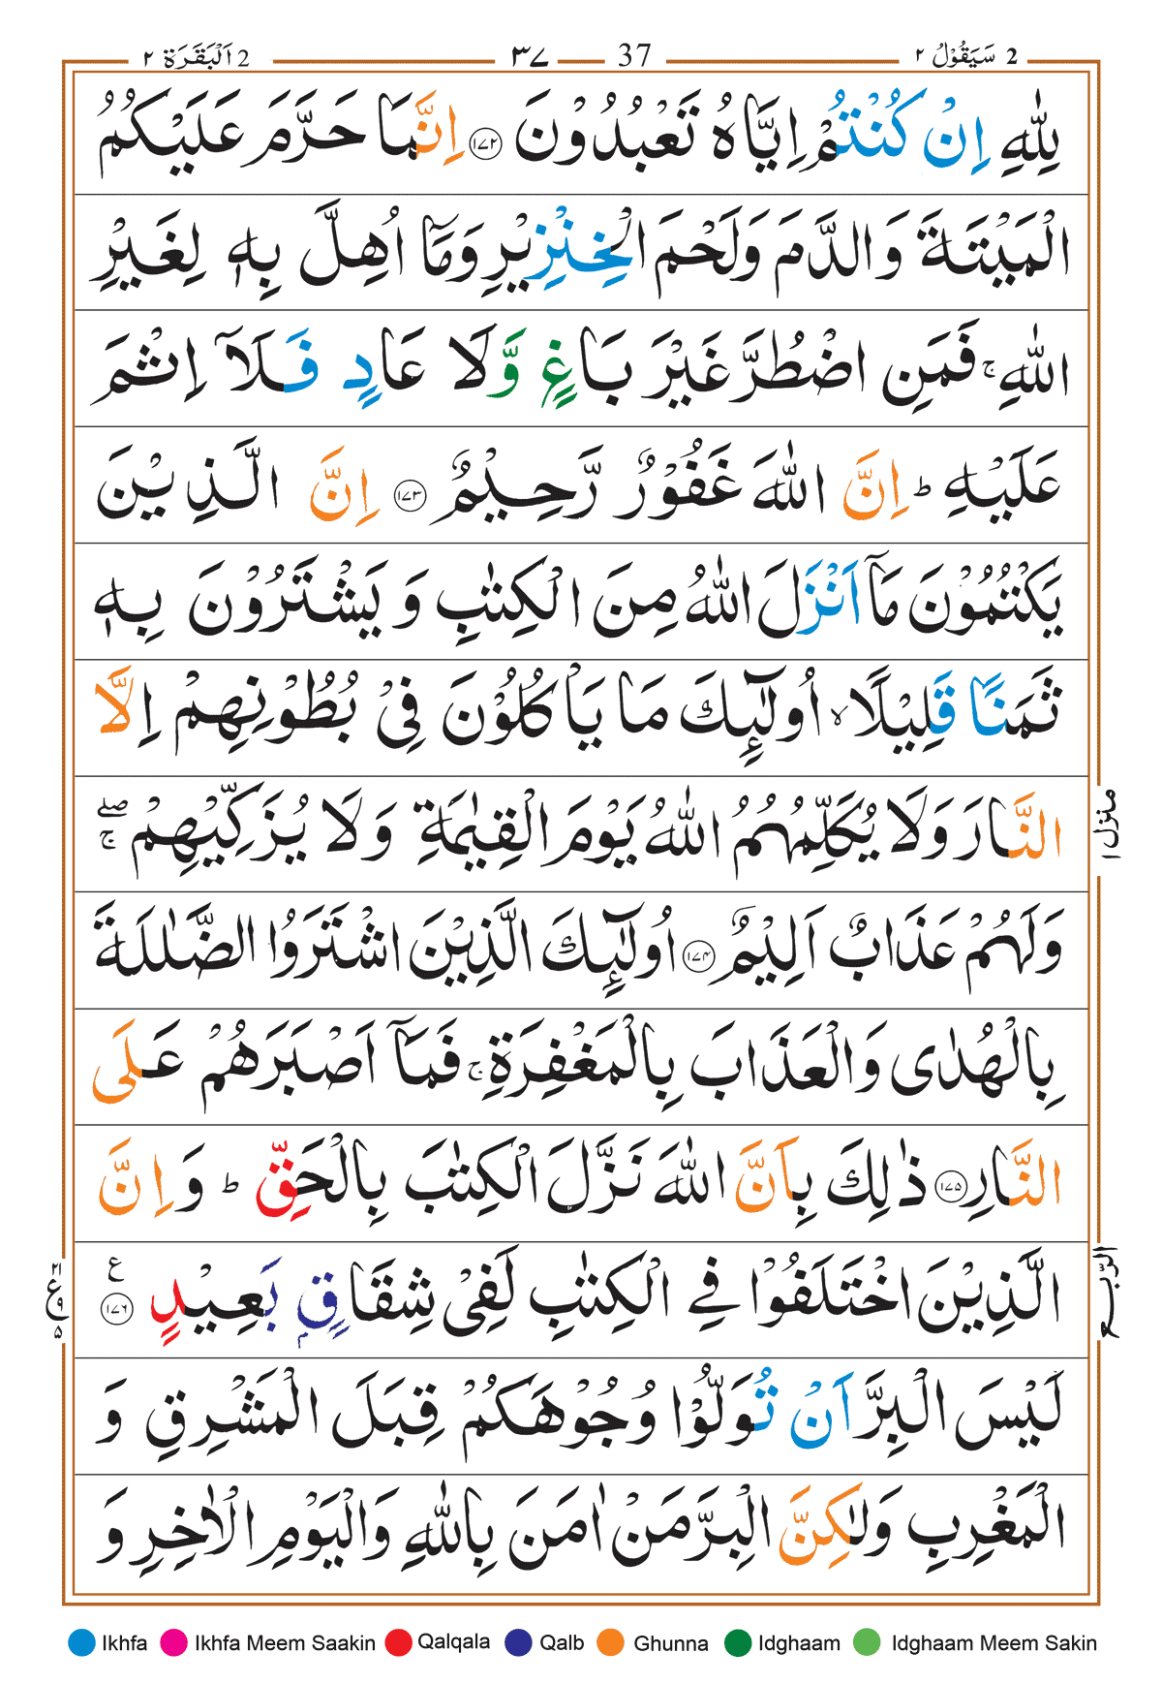 2 اَلْبَقَرَة ٢
٣٧ 37
2 سَيَقُوْلُ ٢
لِلّٰهِ اِنْ كُنْتُمْ اِيَّاهُ تَعْبُدُوْنَ ﴿١٧٢﴾ اِنَّمَا حَرَّمَ عَلَيْكُمُ
الْمَيْتَةَ وَالدَّمَ وَلَحْمَ الْخِنْزِيْرِ وَمَآ اُهِلَّ بِهٖ لِغَيْرِ
اللّٰهِ ۚ فَمَنِ اضْطُرَّ غَيْرَ بَاغٍ وَّلَا عَادٍ فَلَآ اِثْمَ
عَلَيْهِ ؕ اِنَّ اللّٰهَ غَفُوْرٌ رَّحِيْمٌ ﴿١٧٣﴾ اِنَّ الَّذِيْنَ
يَكْتُمُوْنَ مَآ اَنْزَلَ اللّٰهُ مِنَ الْكِتٰبِ وَ يَشْتَرُوْنَ بِهٖ
ثَمَنًا قَلِيْلًا ۙ اُولٰٓئِكَ مَا يَاْكُلُوْنَ فِيْ بُطُوْنِهِمْ اِلَّا
النَّارَ وَلَا يُكَلِّمُهُمُ اللّٰهُ يَوْمَ الْقِيٰمَةِ وَلَا يُزَكِّيْهِمْ ۖۚ
وَلَهُمْ عَذَابٌ اَلِيْمٌ ﴿١٧٤﴾ اُولٰٓئِكَ الَّذِيْنَ اشْتَرَوُا الضَّلٰلَةَ
بِالْهُدٰى وَالْعَذَابَ بِالْمَغْفِرَةِ ۚ فَمَآ اَصْبَرَهُمْ عَلَى
النَّارِ ﴿١٧٥﴾ ذٰلِكَ بِاَنَّ اللّٰهَ نَزَّلَ الْكِتٰبَ بِالْحَقِّ ؕ وَاِنَّ
الَّذِيْنَ اخْتَلَفُوْا فِي الْكِتٰبِ لَفِيْ شِقَاقٍۢ بَعِيْدٍ ﴿١٧٦﴾ ع
لَيْسَ الْبِرَّ اَنْ تُوَلُّوْا وُجُوْهَكُمْ قِبَلَ الْمَشْرِقِ وَ
الْمَغْرِبِ وَلٰكِنَّ الْبِرَّ مَنْ اٰمَنَ بِاللّٰهِ وَالْيَوْمِ الْاٰخِرِ وَ
منزل ١
الرّبع
٢١ ع ٩ ٥
Ikhfa Ikhfa Meem Saakin Qalqala Qalb Ghunna Idghaam Idghaam Meem Sakin